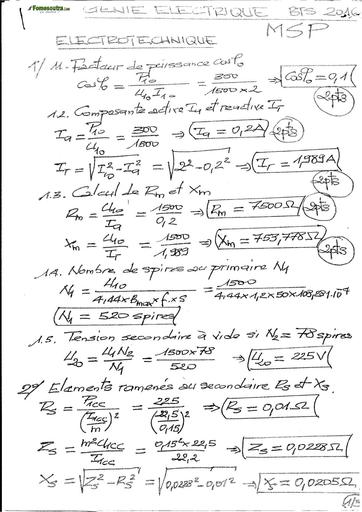 Fomesoutra.com
GENIE ELECTRIQUE BTS 2016
MSP
ELECTROTECHNIQUE
1°/ 11. Facteur de puissance cosφ₀
cosφ₀ = P₁₀/U₁₀I₁₀ = 300/1500×2 ⇒ cosφ₀ = 0,1
2pts
1.2. Composante active Ia et reactive Ir
Ia = P₁₀/U₁₀ = 300/1500 ⇒ Ia = 0,2A 2pts
Ir = √(I₁₀² - Ia²) = √(2² - 0,2²) ⇒ Ir = 1,989A
2pts
1.3. Calcul de Rm et Xm
Rm = U₁₀/Ia = 1500/0,2 ⇒ Rm = 7500Ω 2pts
Xm = U₁₀/Ir = 1500/1,989 ⇒ Xm = 753,778Ω 2pts
1.4. Nombre de spires au primaire N₁
N₁ = U₁₀/4,44×Bmax×f×S = 1500/4,44×1,2×50×108,281.10⁻⁴
N₁ = 520 spires
1.5. Tension secondaire à vide si N₂ = 78 spires
U₂₀ = U₁N₂/N₁ = 1500×78/520 ⇒ U₂₀ = 225V
2°/ Elements ramenés au secondaire Rs et Xs
Rs = P₁cc/(I₁cc/m)² = 225/(22,5/0,15)² ⇒ Rs = 0,01Ω
Zs = m²U₁cc/I₁cc = 0,15²×22,5/22,2 ⇒ Zs = 0,0228Ω
Xs = √(Zs² - Rs²) = √(0,0228² - 0,01²) ⇒ Xs = 0,0205Ω